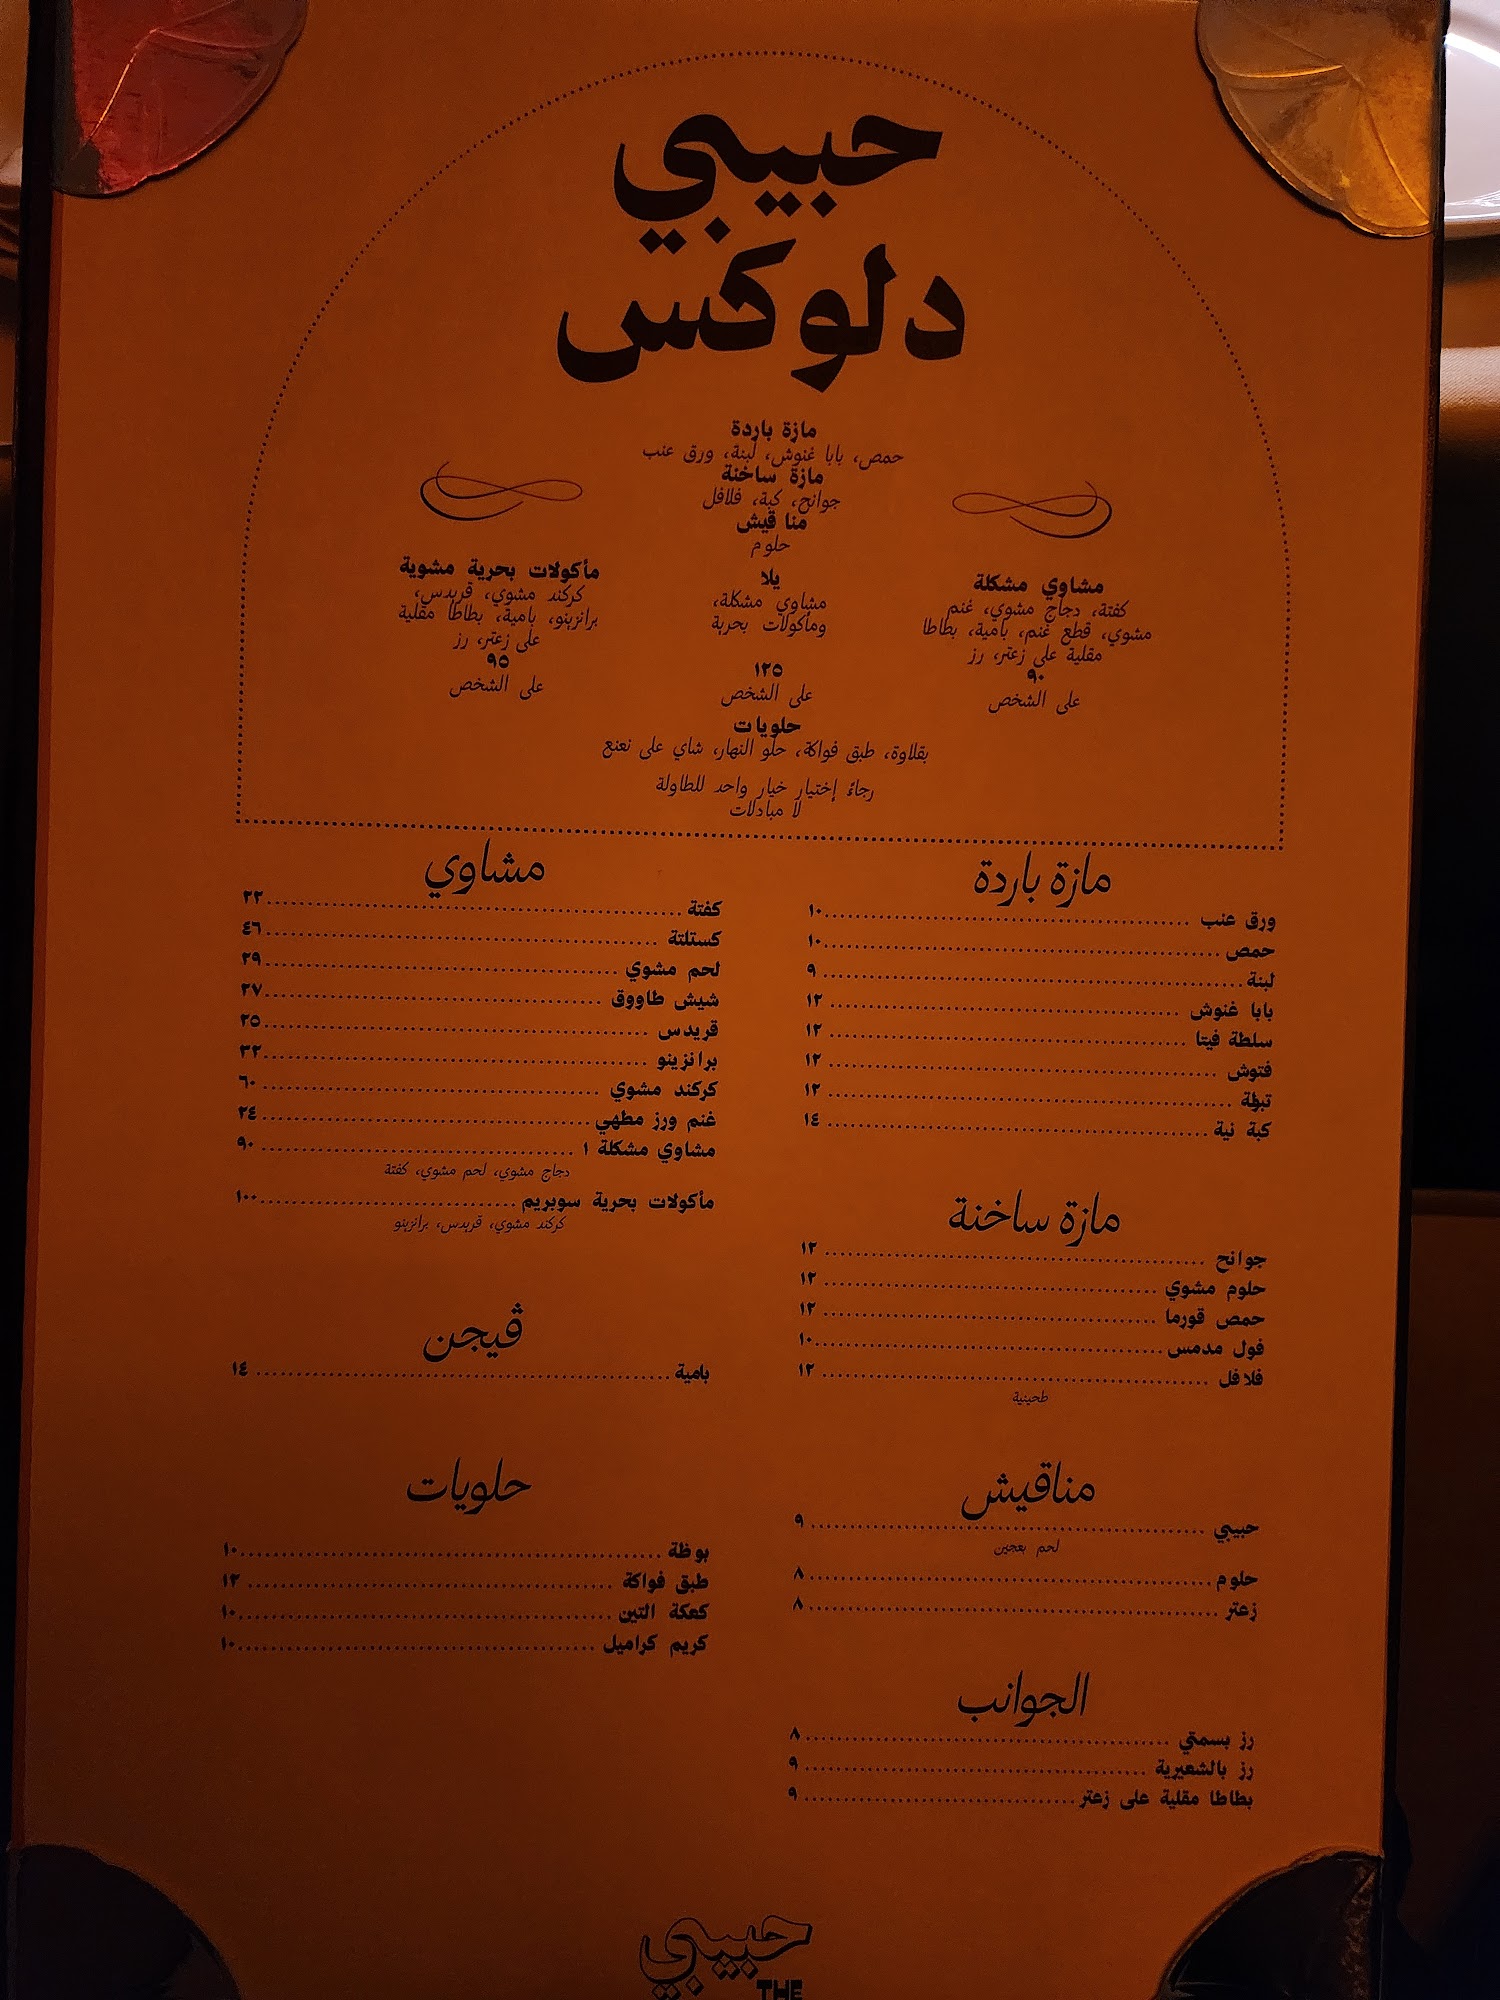 حبيبي
دلوكس
مازة باردة
حمص، بابا غنوش، لبنة، ورق عنب
مازة ساخنة
جوانح، كبة، فلافل
مناقيش
حلوم
مشاوي مشكلة
كفتة، دجاج مشوي، غنم
مشوي، قطع غنم، بامية، بطاطا
مقلية على زعتر، رز
٩٠
على الشخص
يلا
مشاوي مشكلة،
ومأكولات بحرية
١٢٥
على الشخص
مأكولات بحرية مشوية
كركند مشوي، قريدس،
برانزينو، بامية، بطاطا مقلية
على زعتر، رز
٩٥
على الشخص
حلويات
بقلاوة، طبق فواكة، حلو النهار، شاي على نعنع
رجاءً إختيار خيار واحد للطاولة
لا مبادلات
مازة باردة
ورق عنب ١٠
حمص ١٠
لبنة ٩
بابا غنوش ١٢
سلطة فيتا ١٢
فتوش ١٢
تبولة ١٢
كبة نية ١٤
مازة ساخنة
جوانح ١٢
حلوم مشوي ١٢
حمص قورما ١٢
فول مدمس ١٠
فلافل ١٢
طحينية
مناقيش
حبيبي ٩
لحم بعجين
حلوم ٨
زعتر ٨
الجوانب
رز بسمتي ٨
رز بالشعيرية ٩
بطاطا مقلية على زعتر ٩
مشاوي
كفتة ٢٢
كستلتة ٤٦
لحم مشوي ٢٩
شيش طاووق ٢٧
قريدس ٢٥
برانزينو ٣٢
كركند مشوي ٦٠
غنم ورز مطهي ٢٤
مشاوي مشكلة ١ ٩٠
دجاج مشوي، لحم مشوي، كفتة
مأكولات بحرية سوبريم ١٠٠
كركند مشوي، قريدس، برانزينو
ڤيجن
بامية ١٤
حلويات
بوظة ١٠
طبق فواكة ١٢
كعكة التين ١٠
كريم كراميل ١٠
حبيبي
THE